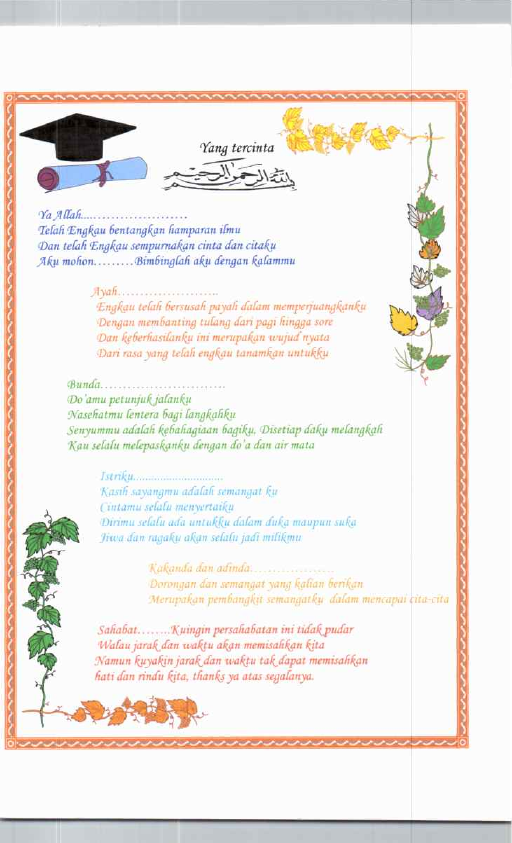 Yang tercinta
بسم الله الرحمن الرحيم
Ya Allah.......................
Telah Engkau bentangkan hamparan ilmu
Dan telah Engkau sempurnakan cinta dan citaku
Aku mohon.........Bimbinglah aku dengan kalammu
Ayah......................
Engkau telah bersusah payah dalam memperjuangkanku
Dengan membanting tulang dari pagi hingga sore
Dan keberhasilanku ini merupakan wujud nyata
Dari rasa yang telah engkau tanamkan untukku
Bunda...........................
Do'amu petunjuk jalanku
Nasehatmu lentera bagi langkahku
Senyummu adalah kebahagiaan bagiku, Disetiap daku melangkah
Kau selalu melepaskanku dengan do'a dan air mata
Istriku............................
Kasih sayangmu adalah semangat ku
Cintamu selalu menyertaiku
Dirimu selalu ada untukku dalam duka maupun suka
Jiwa dan ragaku akan selalu jadi milikmu
Kakanda dan adinda..................
Dorongan dan semangat yang kalian berikan
Merupakan pembangkit semangatku dalam mencapai cita-cita
Sahabat........Kuingin persahabatan ini tidak pudar
Walau jarak dan waktu akan memisahkan kita
Namun kuyakin jarak dan waktu tak dapat memisahkan
hati dan rindu kita, thanks ya atas segalanya.